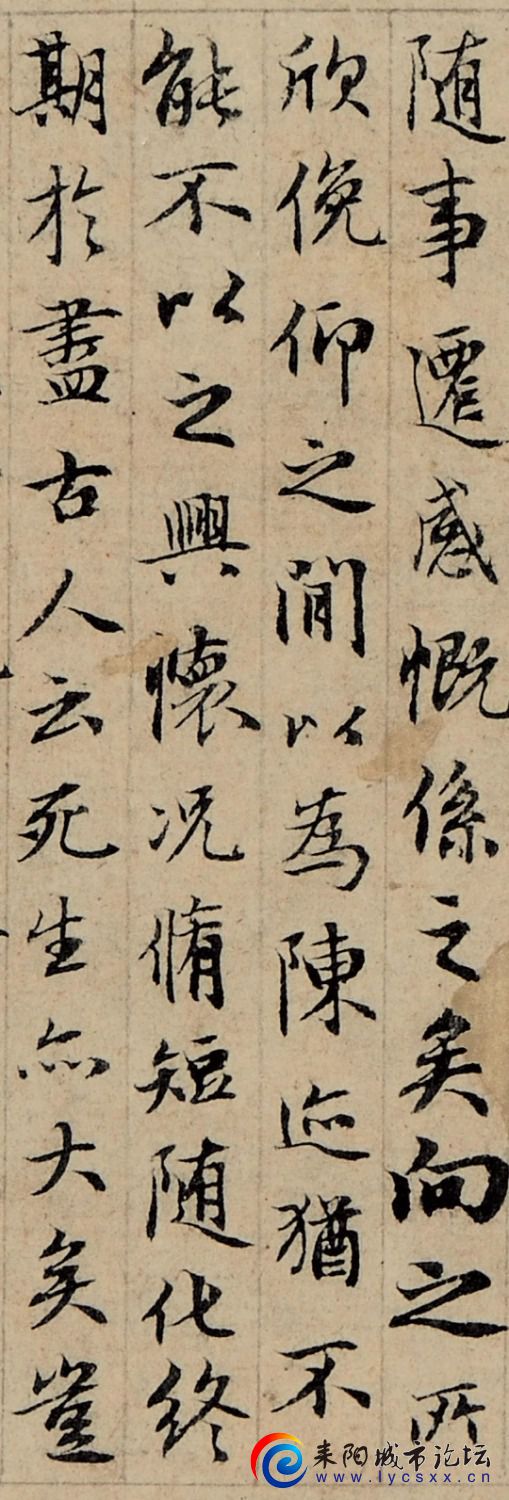 随事遷感慨係之矣向之所
欣俛仰之閒以為陳迹猶不
能不以之興懷况脩短随化終
期於盡古人云死生亦大矣豈
耒阳城市论坛
www.lycsxx.cn